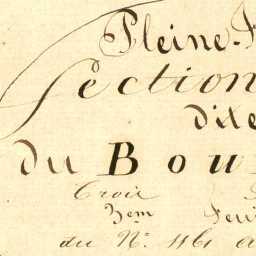 Pleine-F
Section
dite
du Bou
Croix
3em Feui
du N° 461 a